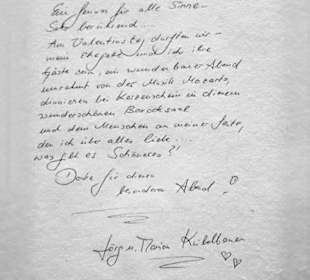 Ein Genuss für alle Sinne –
Sehr berührend...
Am Valentinstag durften wir –
mein Ehegatte und ich ihre
Gäste sein, ein wunderbarer Abend
umrahmt von der Musik Mozarts,
dinnieren bei Kerzenschein in diesem
wunderschönen Barocksaal
und dem Menschen an meiner Seite,
den ich über alles liebe...
was gibt es Schöneres?!
Danke für diesen
besonderen Abend!
Jörg u. Maria